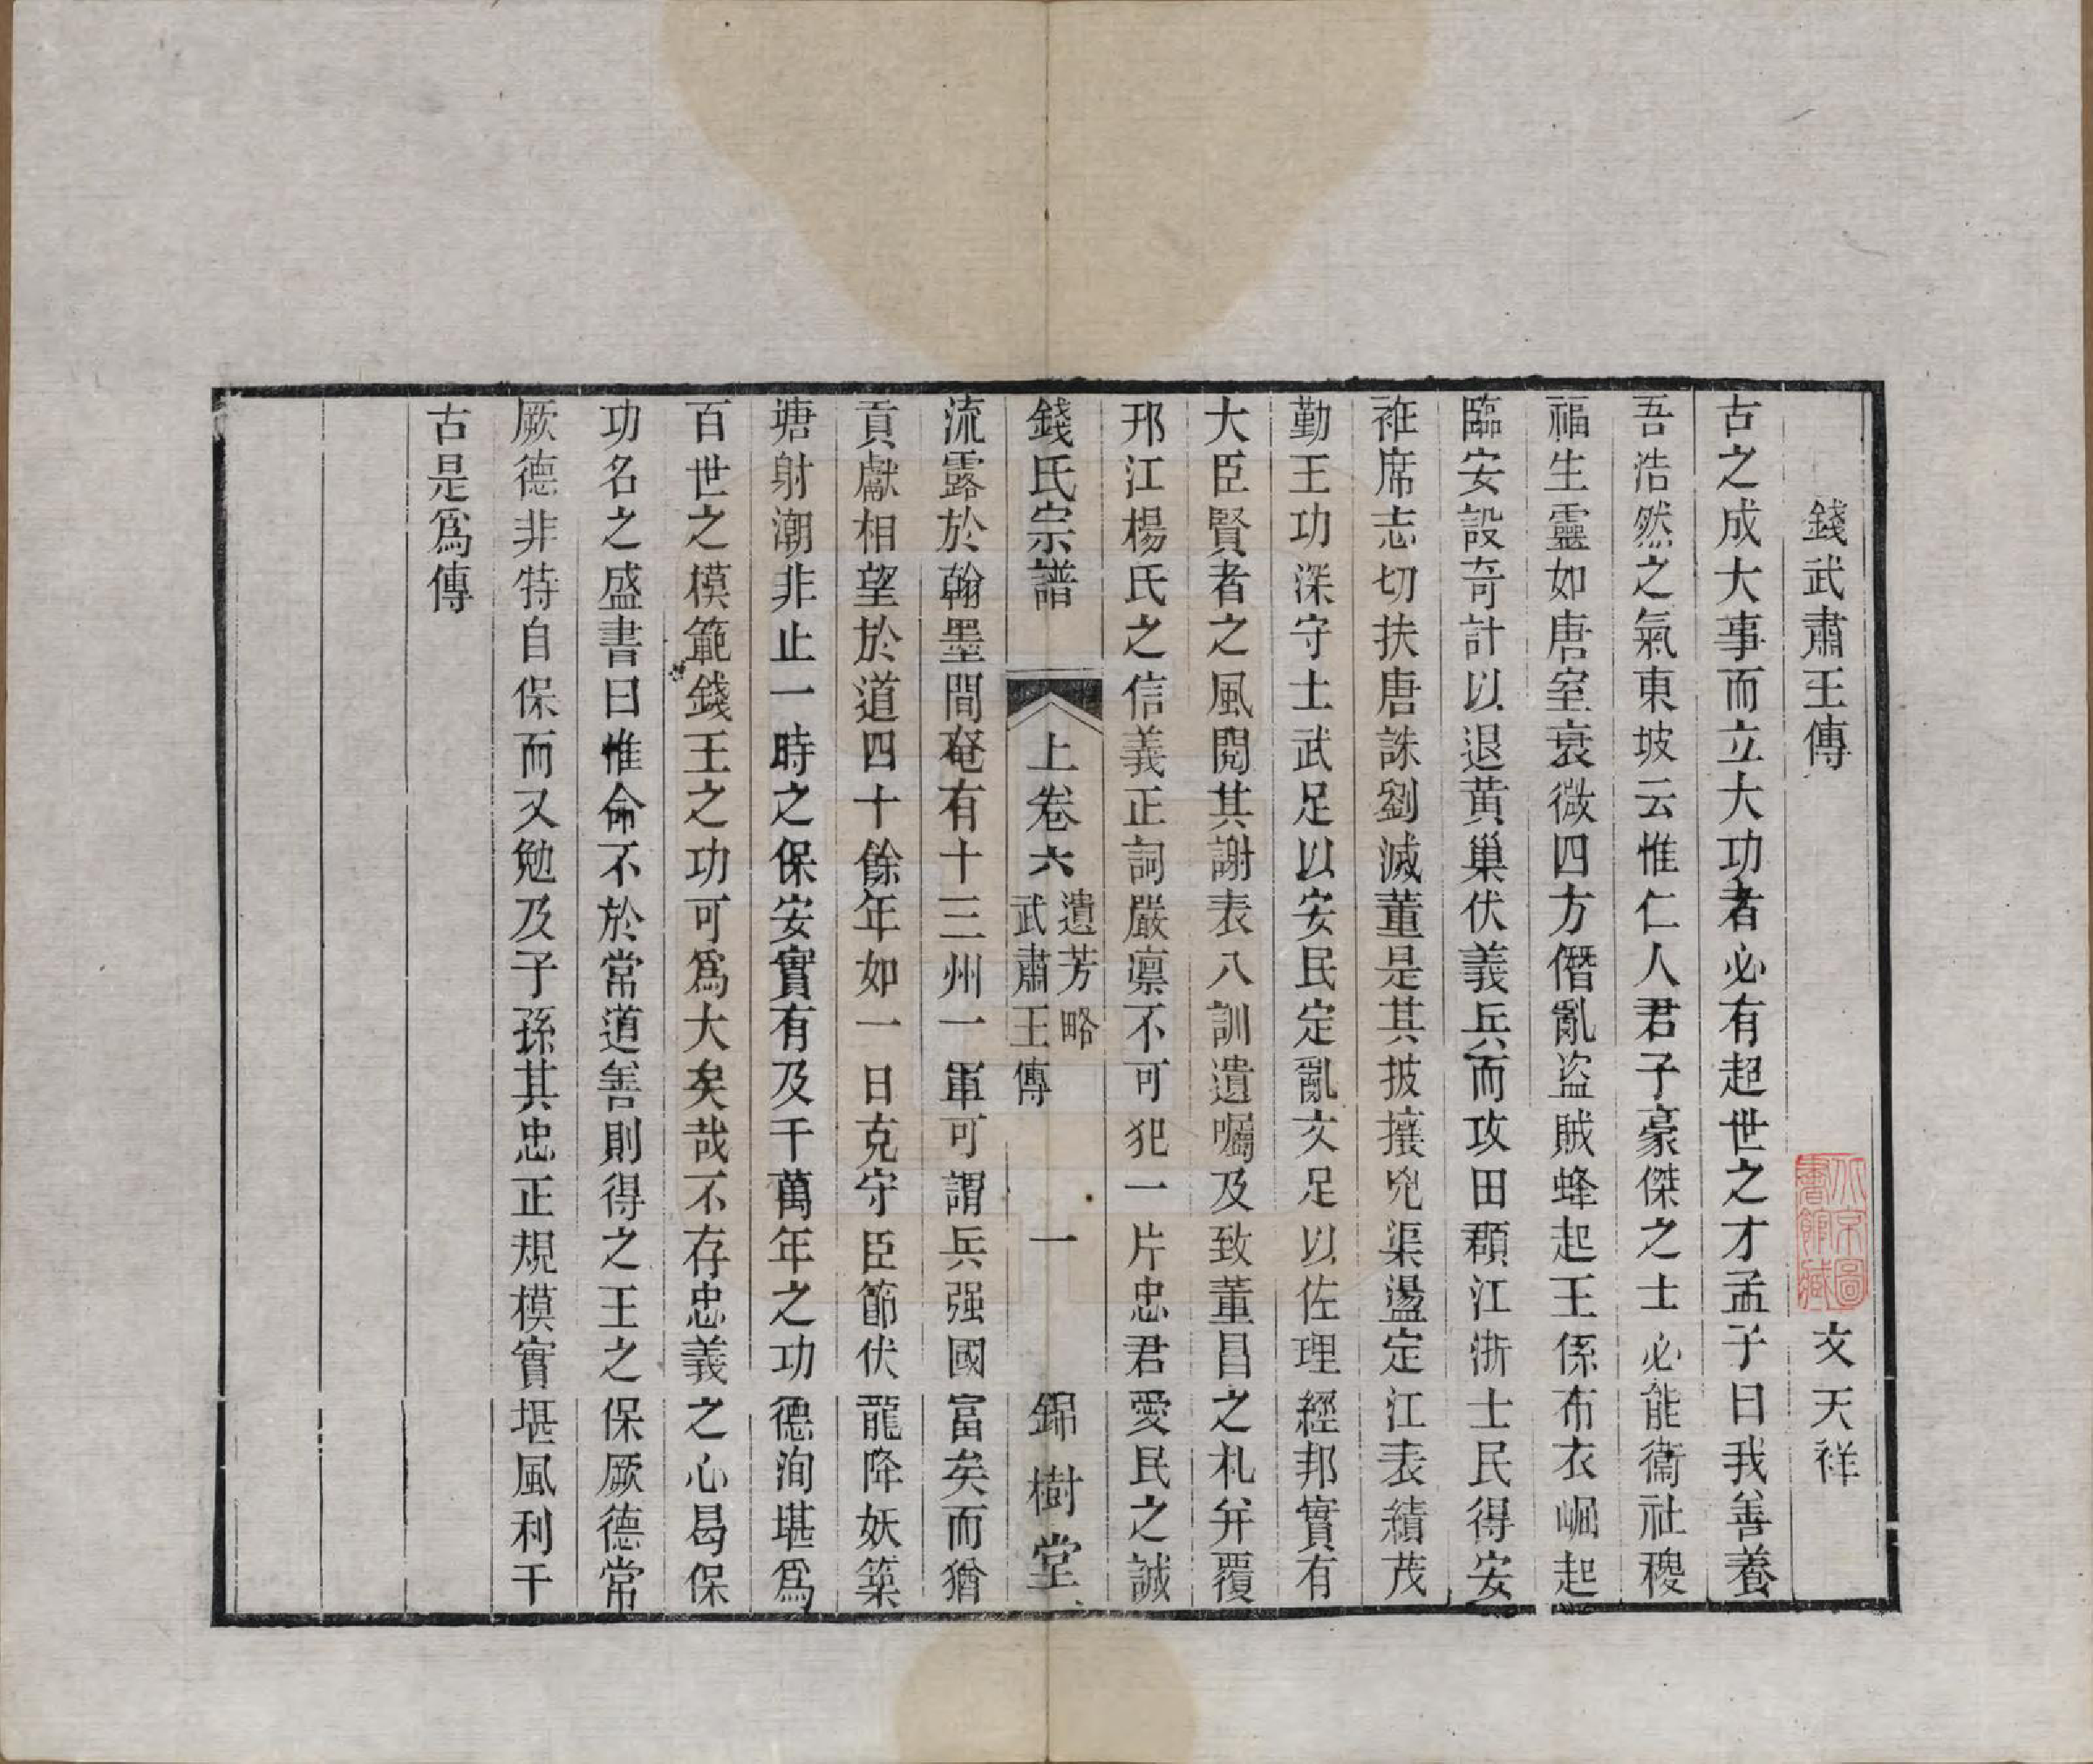 錢武肅王傳　文天祥
北京圖書館藏
古之成大事而立大功者必有超世之才孟子曰我善養
吾浩然之氣東坡云惟仁人君子豪傑之士必能衞社稷
福生靈如唐室衰微四方僭亂盜賊蜂起王係布衣崛起
臨安設奇計以退黃巢伏義兵而攻田頵江浙士民得安
袵席志切扶唐誅劉滅董是其披攘兇渠盪定江表績茂
勤王功深守土武足以安民定亂文足以佐理經邦實有
大臣賢者之風閱其謝表八訓遺囑及致董昌之札幷覆
邗江楊氏之信義正詞嚴凛不可犯一片忠君愛民之誠
錢氏宗譜　上卷六　遺芳略　武肅王傳　一　錦樹堂
流露於翰墨間奄有十三州一軍可謂兵强國富矣而猶
貢獻相望於道四十餘年如一日克守臣節伏龍降妖築
塘射潮非止一時之保安實有及千萬年之功德洵堪爲
百世之模範錢王之功可爲大矣哉不存忠義之心曷保
功名之盛書曰惟命不於常道善則得之王之保厥德常
厥德非特自保而又勉及子孫其忠正規模實堪風利千
古是爲傳